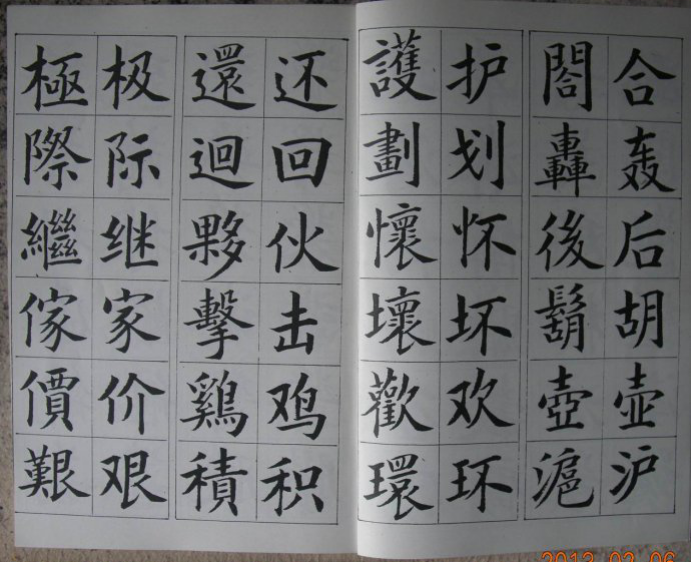 閤合
轟轰
後后
鬍胡
壺壶
滬沪
護护
劃划
懷怀
壞坏
歡欢
環环
還还
迴回
夥伙
擊击
鷄鸡
積积
極极
際际
繼继
傢家
價价
艱艰